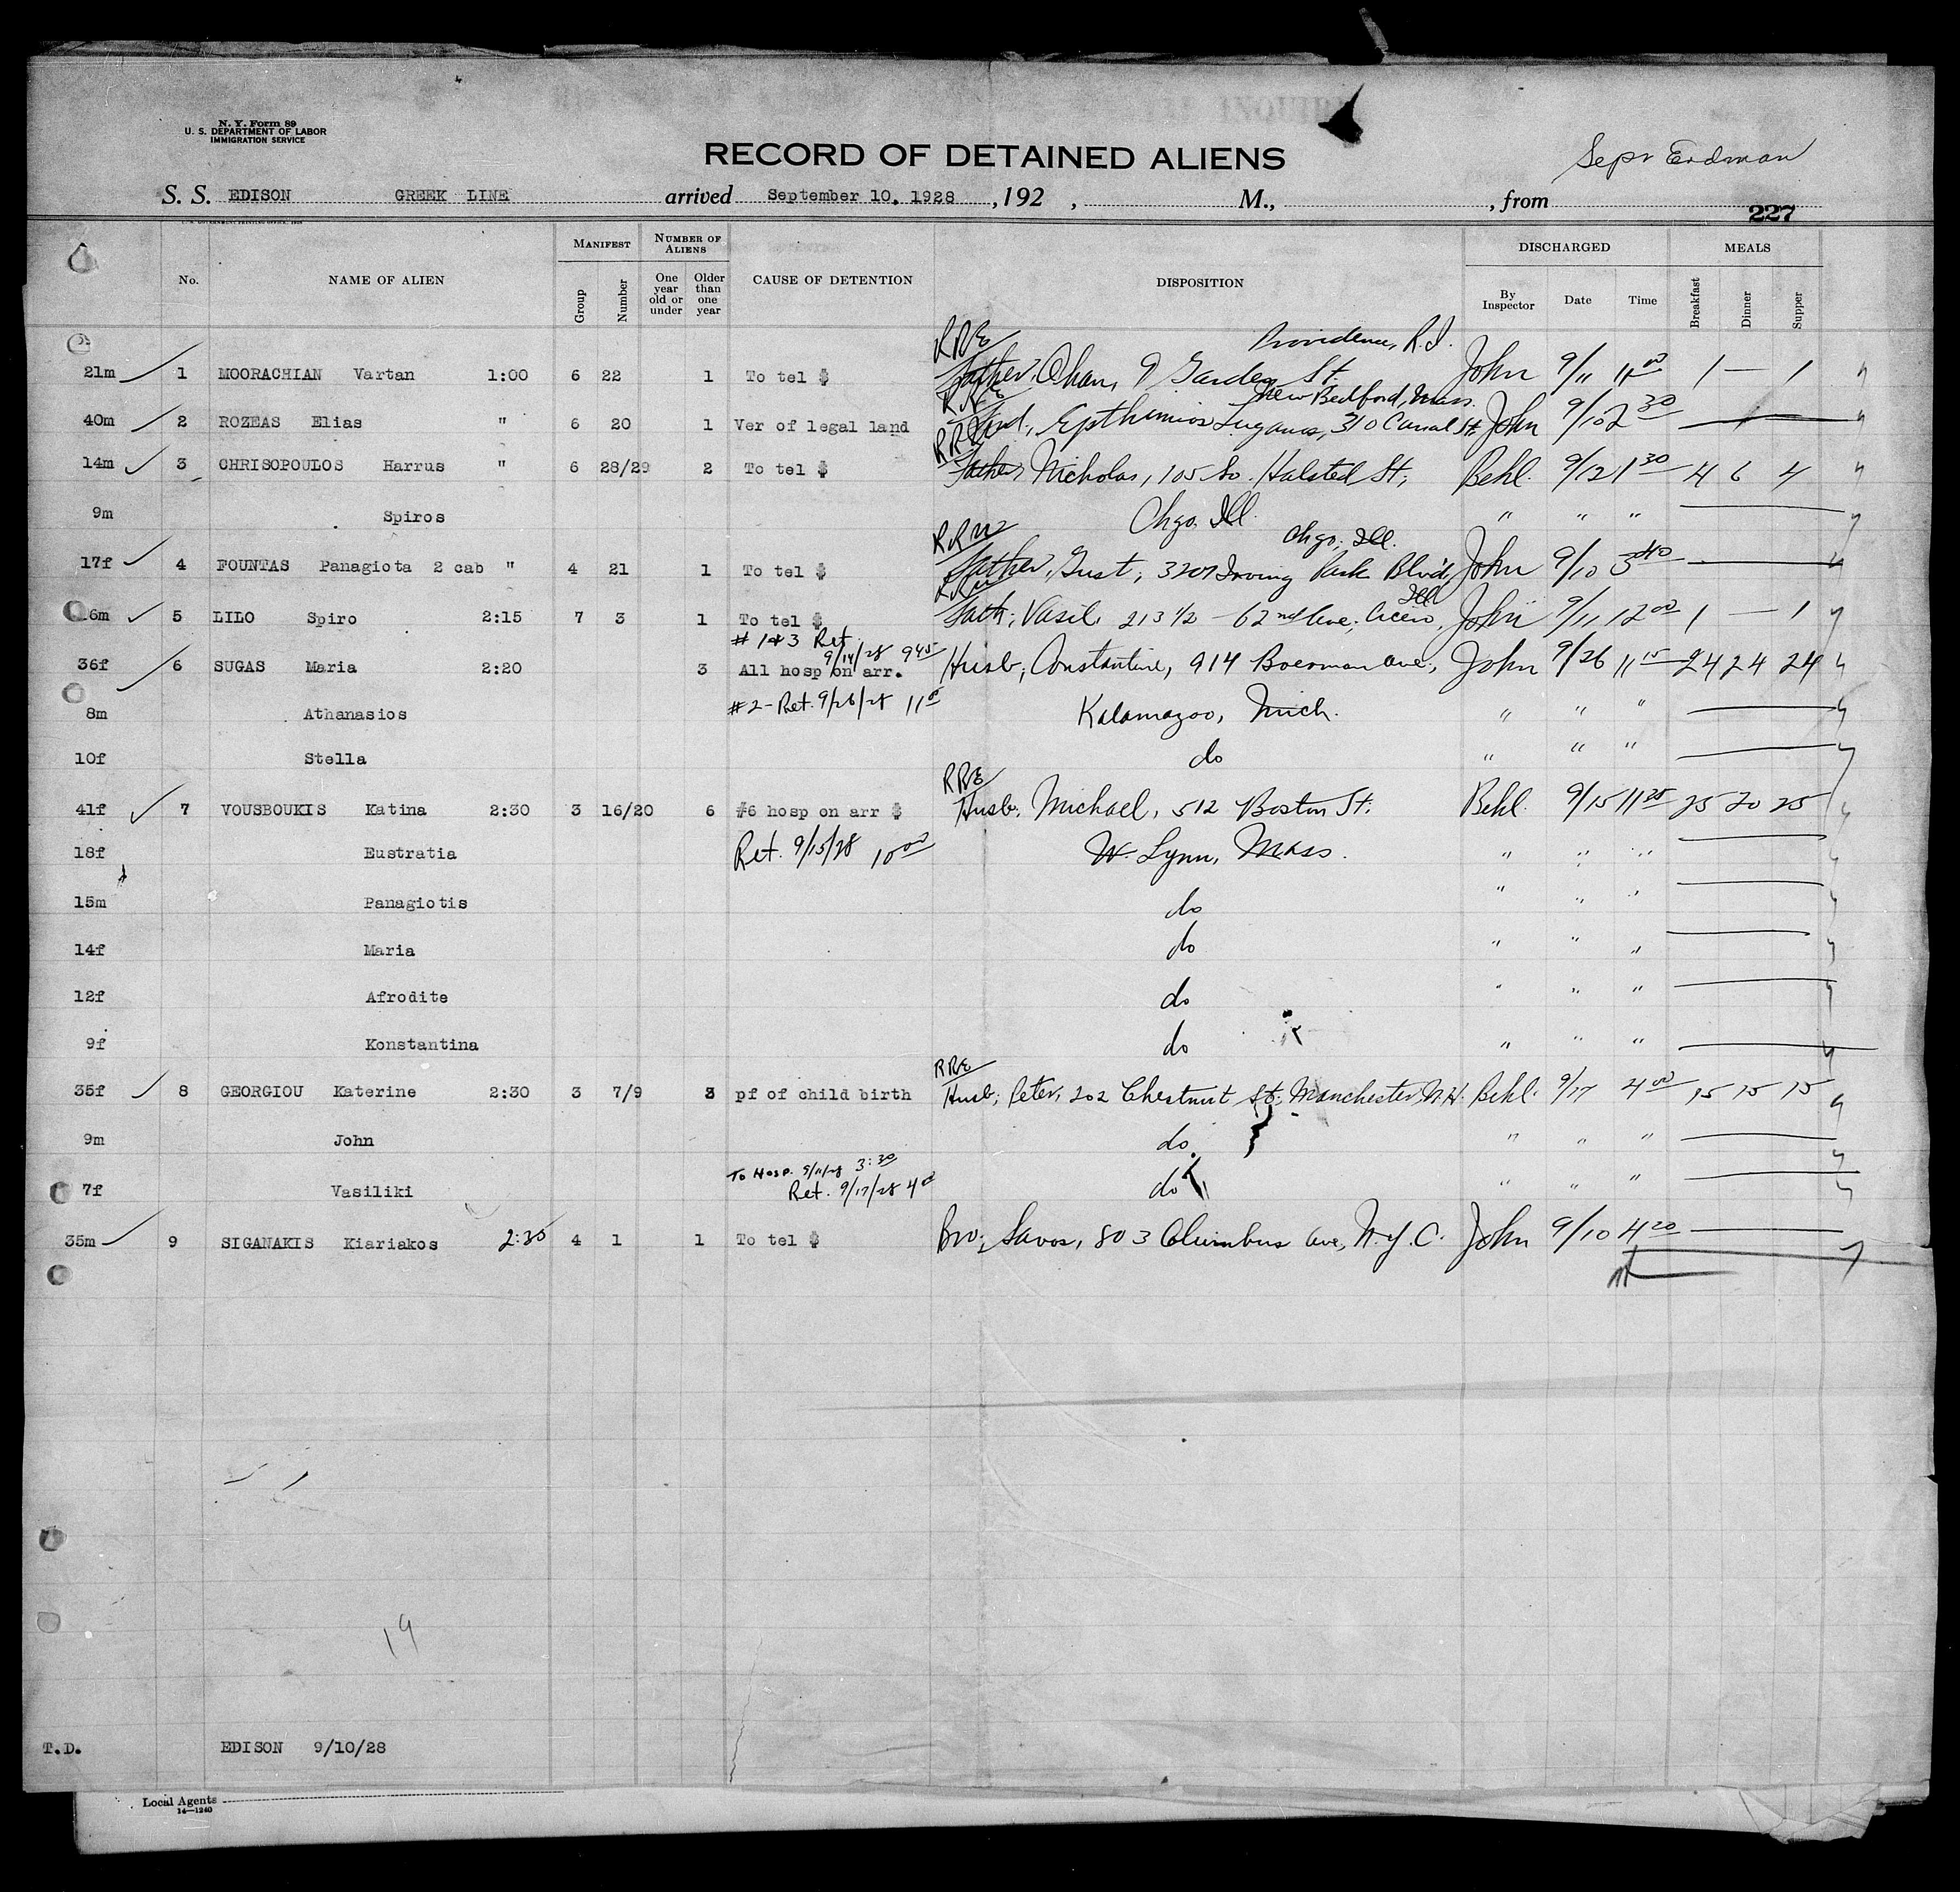 N. Y. Form 89
U. S. DEPARTMENT OF LABOR
IMMIGRATION SERVICE
RECORD OF DETAINED ALIENS
Erdman
S. S. EDISON GREEK LINE arrived September 10, 1928 , 192 , M., , from
227
No. NAME OF ALIEN MANIFEST Group Number NUMBER OF ALIENS One year old or under Older than one year CAUSE OF DETENTION DISPOSITION DISCHARGED By Inspector Date Time MEALS Breakfast Dinner Supper
RRE Providence, R.I.
21m 1 MOORACHIAN Vartan 1:00 6 22 1 To tel $ Father, Ohan, 9 Garden St. John 9/11 11 00 1 — 1
New Bedford, Mass.
40m 2 ROZEAS Elias " 6 20 1 Ver of legal land 310 Canal St. John 9/10 2 30
RRE
14m 3 CHRISOPOULOS Harrus " 6 28/29 2 To tel $ Father Nicholas, 105 So. Halsted St, Behl. 9/12 1 30 4 6 4
9m Spiros Chgo. Ill. " " "
RRW Chgo, Ill.
17f 4 FOUNTAS Panagiota 2 cab " 4 21 1 To tel $ Father, Gust, 3207 Irving Park Blvd, John 9/10 3 40
Ill
26m 5 LILO Spiro 2:15 7 3 1 To tel $ Fath; Vasil, 213 1/2 – 62nd Ave; Cicero, John 9/11 12 00 1 — 1
# 1&3 Ret 9/14/28 9 45
36f 6 SUGAS Maria 2:20 3 All hosp on arr. Husb, Constantine, 914 Boerman Ave., John 9/26 11 15 24 24 24
8m Athanasios #2 - Ret. 9/26/28 11 Kalamazoo, Mich. " " "
10f Stella do " " "
RRE
41f 7 VOUSBOUKIS Katina 2:30 3 16/20 6 #6 hosp on arr $ Husb. Michael, 512 Boston St. Behl. 9/15 11 25 25 20 25
18f Eustratia Ret. 9/15/28 10 00 W. Lynn, Mass. " " "
15m Panagiotis do " " "
14f Maria do " " "
12f Afrodite do " " "
9f Konstantina do " " "
RRE
35f 8 GEORGIOU Katerine 2:30 3 7/9 3 pf of child birth Husb, Peter, 202 Chestnut St; Manchester, N.H. Behl. 9/17 4 00 15 15 15
9m John do " " "
To Hosp. 9/11/28 3:30
7f Vasiliki Ret. 9/17/28 4 do " " "
35m 9 SIGANAKIS Kiariakos 2:35 4 1 1 To tel $ Bro; Savos, 803 Columbus Ave, N.Y.C. John 9/10 4 20
19
T.D. EDISON 9/10/28
Local Agents
14—1240